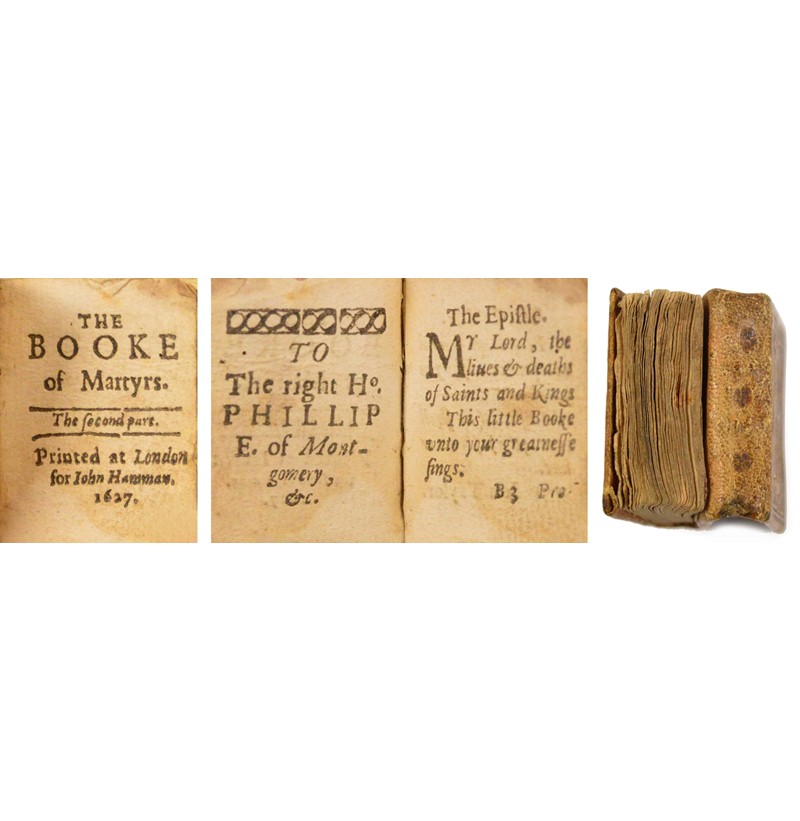 THE
BOOKE
of Martyrs.
The ſecond part.
Printed at London
for Iohn Hamman.
1627.
TO
The right Ho.
PHILLIP
E. of Mont-
gomery,
&c.
The Epiſtle.
MY Lord, the
liues & deaths
of Saints and Kings
This little Booke
vnto your greatneſſe
ſings.
B3 Pro-